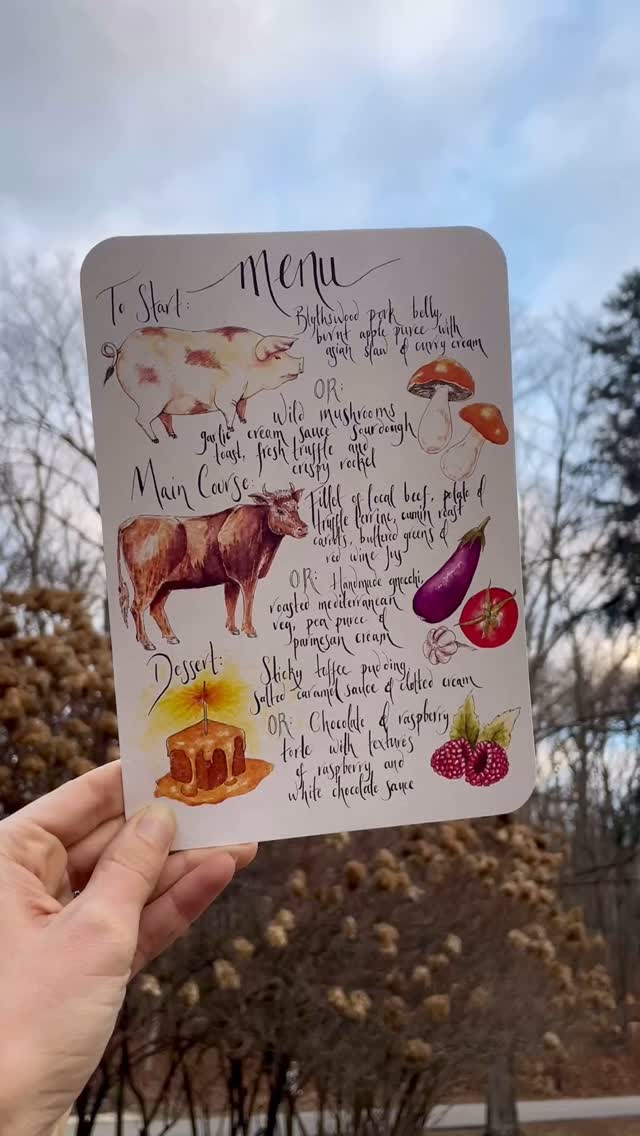 Menu
To Start:
Blythswood pork belly,
burnt apple puree with
asian slaw & curry cream
OR:
Wild mushrooms
garlic cream sauce sourdough
toast, fresh truffle and
crispy rocket
Main Course:
Fillet of local beef, potato &
truffle terrine, cumin roast
carrots, buttered greens &
red wine jus
OR: Handmade gnocchi,
roasted mediterranean
veg, pea puree &
parmesan cream
Dessert:
Sticky toffee pudding,
salted caramel sauce & clotted cream
OR: Chocolate & raspberry
torte with textures
of raspberry and
white chocolate sauce